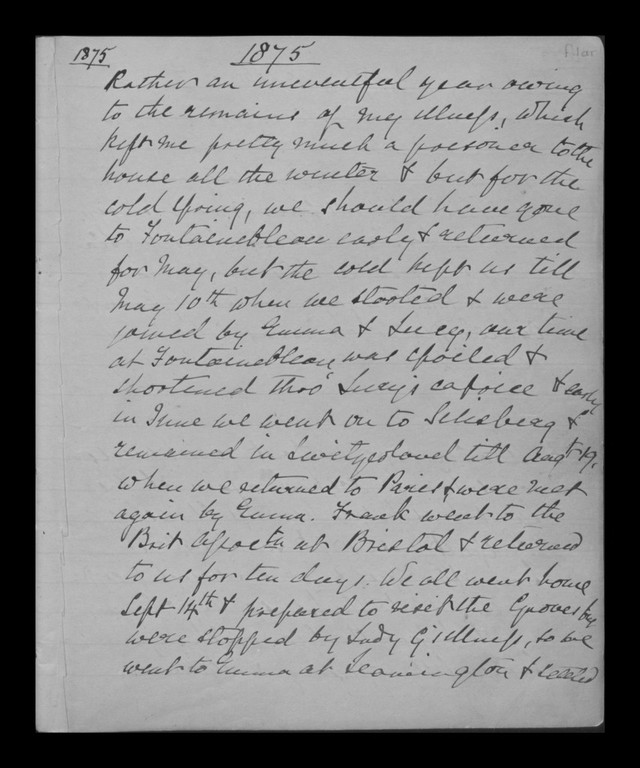 1875 1875
Rather an uneventful year owing
to the remains of my illness, which
kept me pretty much a prisoner to the
house all the winter & but for the
cold Spring, we should have gone
to Fontainebleau early & returned
for May, but the cold kept us till
May 10th when we started & were
joined by Emma & Lucy, our time
at Fontainebleau was spoiled &
shortened thro' Lucy's caprice & early
in June we went on to &
remained in Switzerland till Augt 19.
when we returned to Paris & were met
again by Emma. Frank went to the
Brit Assoctn at Bristol & returned
to us for ten days. We all went home
Sept 14th & prepared to visit the Groves but
were stopped by Lady G's illness, so we
went to Emma at Leamington &